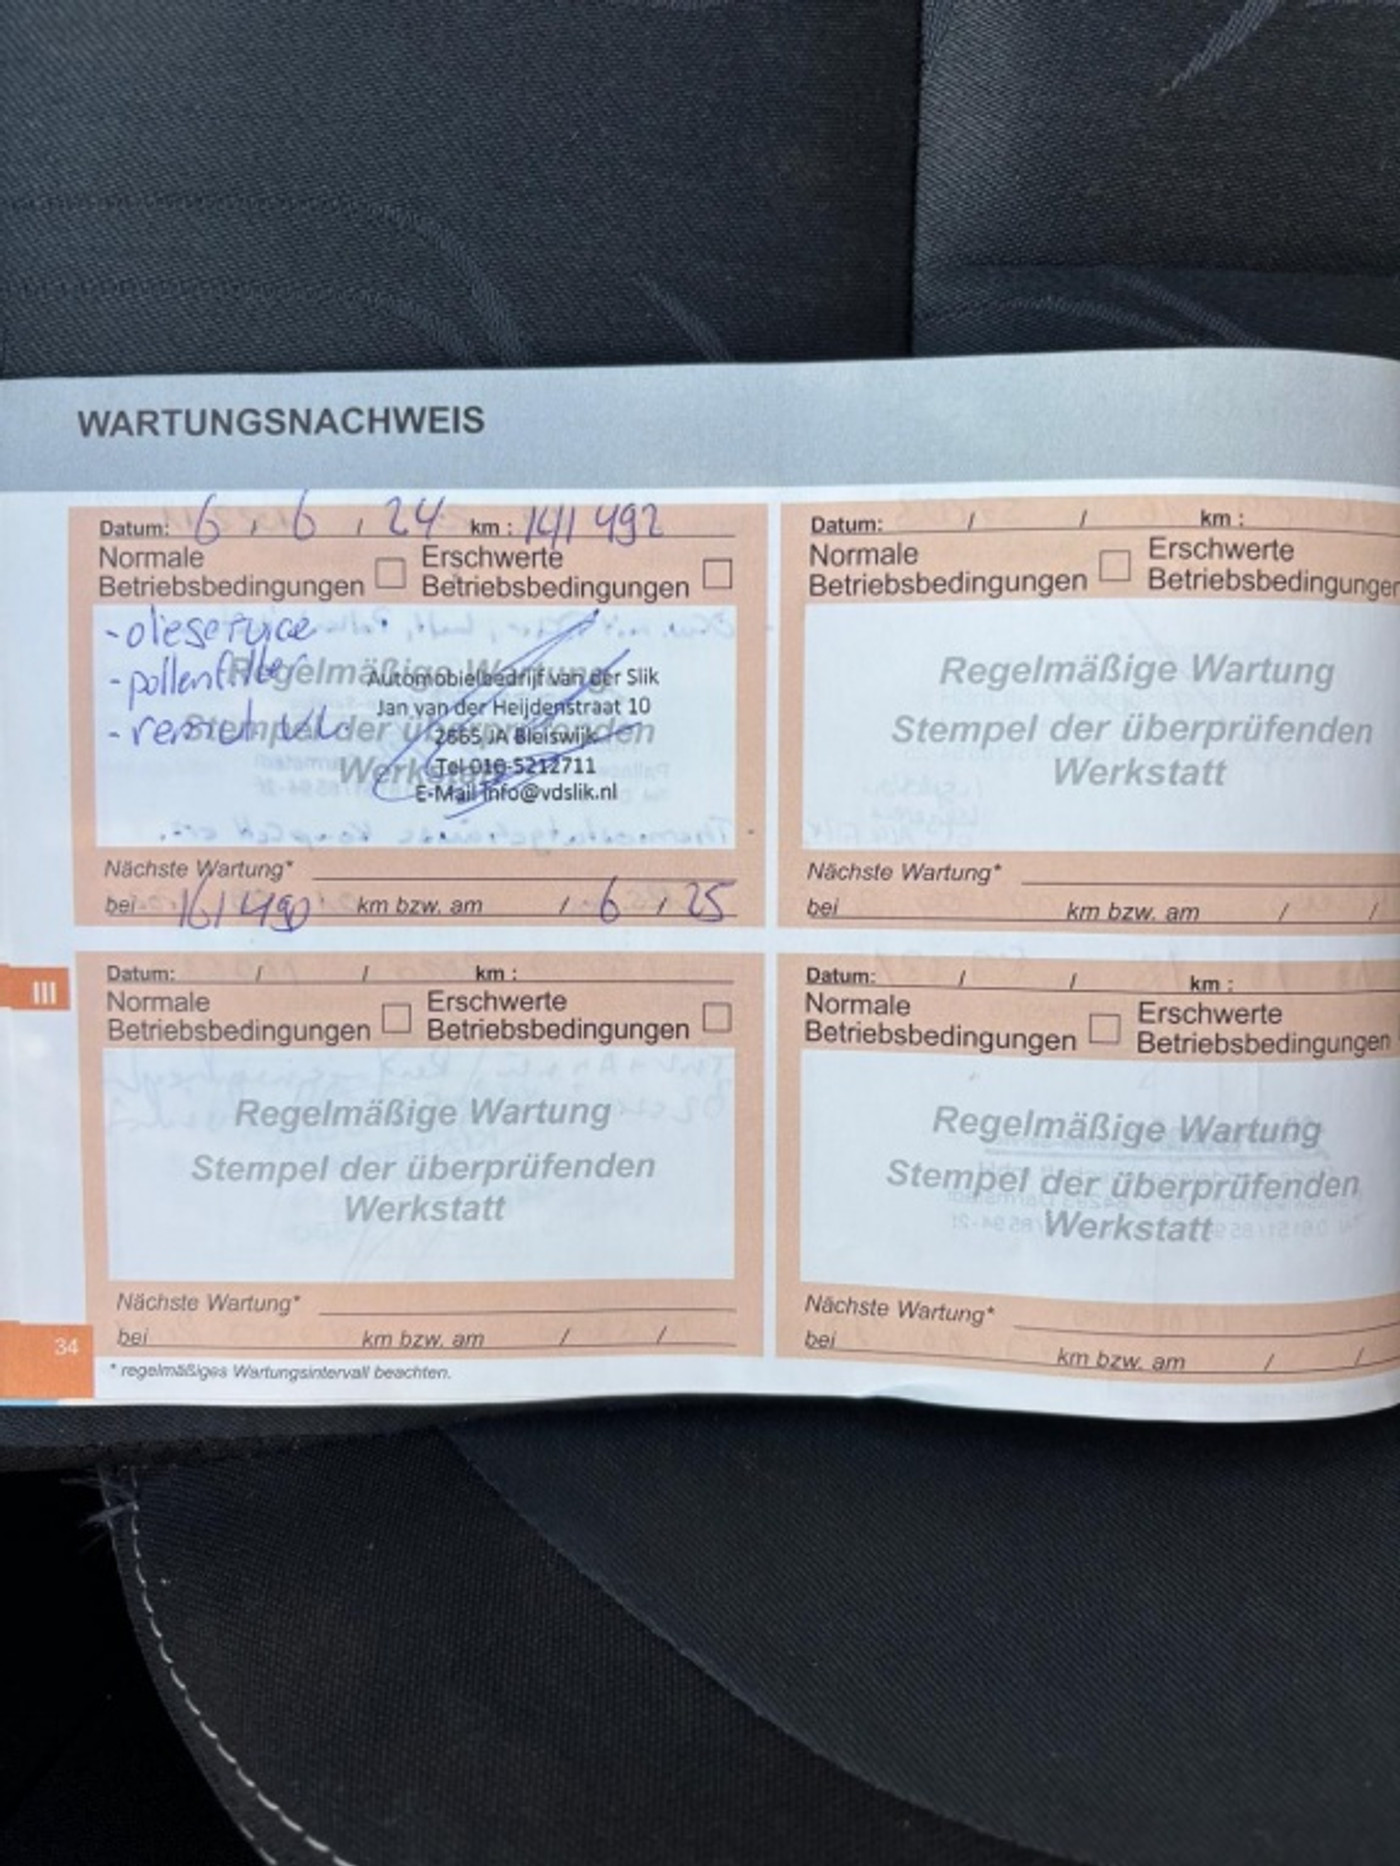 WARTUNGSNACHWEIS
Datum: 6 / 6 / 24 km : 141 492
Normale Betriebsbedingungen
Erschwerte Betriebsbedingungen
- olieservice
- pollenfilter
-
Regelmäßige Wartung
Stempel der überprüfenden
Werkstatt
Automobielbedrijf van der Slik
Jan van der Heijdenstraat 10
2665 JA Bleiswijk
Tel 010-5212711
E-Mail info@vdslik.nl
Nächste Wartung*
bei 161 490 km bzw. am / 6 / 25
Datum: / / km :
Normale Betriebsbedingungen
Erschwerte Betriebsbedingungen
Regelmäßige Wartung
Stempel der überprüfenden
Werkstatt
Nächste Wartung*
bei km bzw. am / /
III
Datum: / / km :
Normale Betriebsbedingungen
Erschwerte Betriebsbedingungen
Regelmäßige Wartung
Stempel der überprüfenden
Werkstatt
Nächste Wartung*
bei km bzw. am / /
Datum: / / km :
Normale Betriebsbedingungen
Erschwerte Betriebsbedingungen
Regelmäßige Wartung
Stempel der überprüfenden
Werkstatt
Nächste Wartung*
bei km bzw. am / /
34
* regelmäßiges Wartungsintervall beachten.